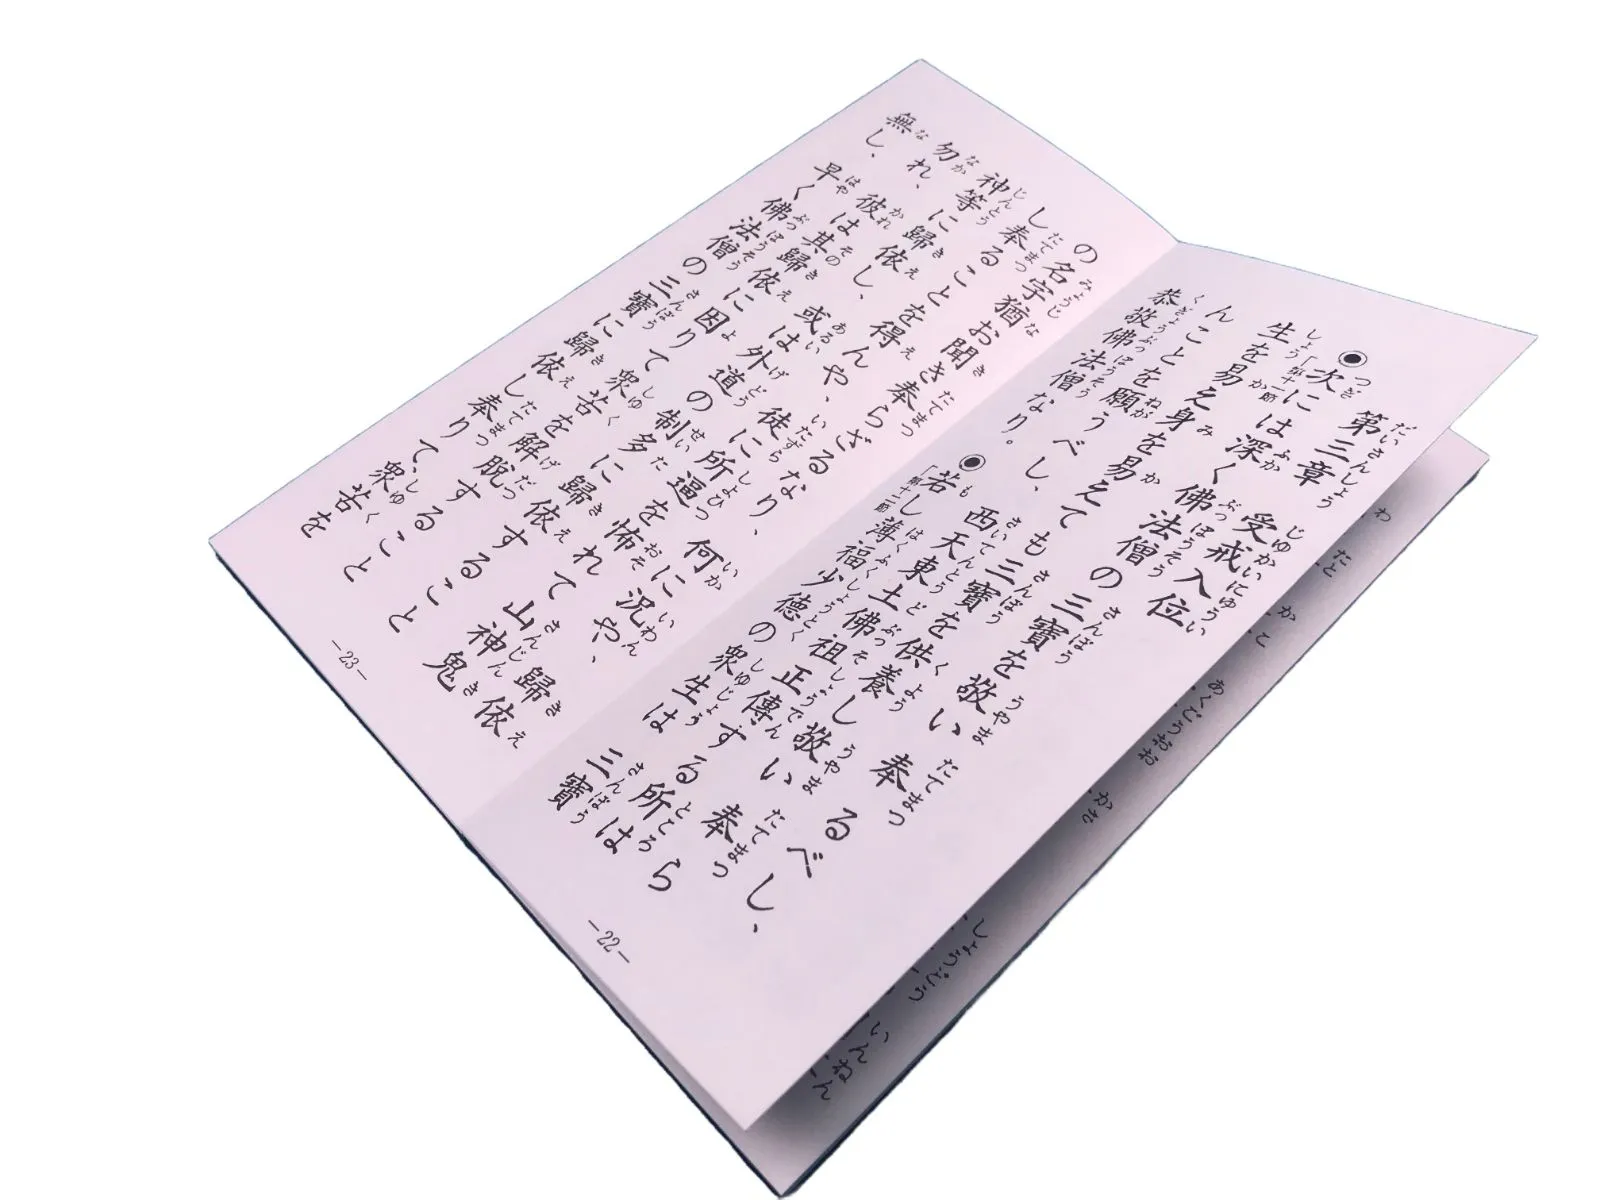 第三章 受戒入位
◉次には深く佛法僧の三寶を敬い奉るべし、
「第十一節
生を易え身を易えても三寶を供養し敬い奉ら
んことを願うべし、西天東土佛祖正傳する所は
恭敬佛法僧なり。◉若し薄福少徳の衆生は三寶
「第十二節
—22—
の名字猶お聞き奉らざるなり、何に況や歸依
し奉ることを得んや、徒に所逼を怖れて山神鬼
神等に歸依し、或は外道の制多に歸依すること
勿れ、彼は其歸依に因りて衆苦を解脱すること
無し、早く佛法僧の三寶に歸依し奉りて、衆苦を
—23—